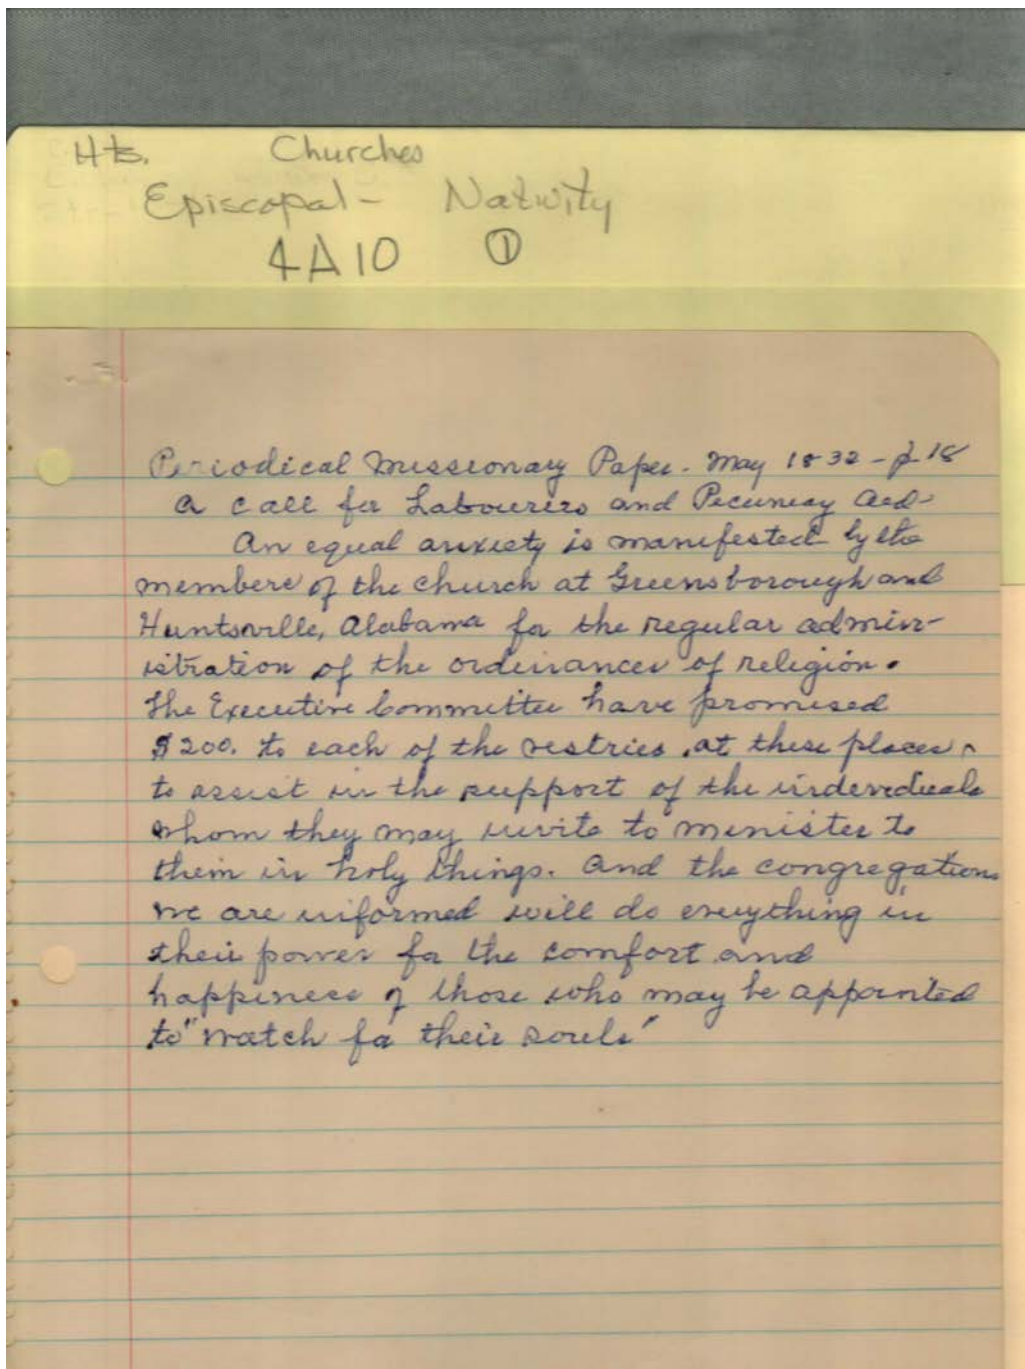 Hts. Churches
Episcopal - Nativity
4A10 ①
Periodical Missionary Paper. May 1832 - p. 18
A Call for Labourers and Pecuniary Aid -
An equal anxiety is manifested by the
members of the church at Greensborough and
Huntsville, Alabama for the regular admin-
istration of the ordinances of religion.
The Executive Committee have promised
$200. to each of the vestries, at these places,
to assist in the support of the individuals
whom they may invite to minister to
them in holy things. And the congregations
we are informed will do everything in
their power for the comfort and
happiness of those who may be appointed
to "watch for their souls"